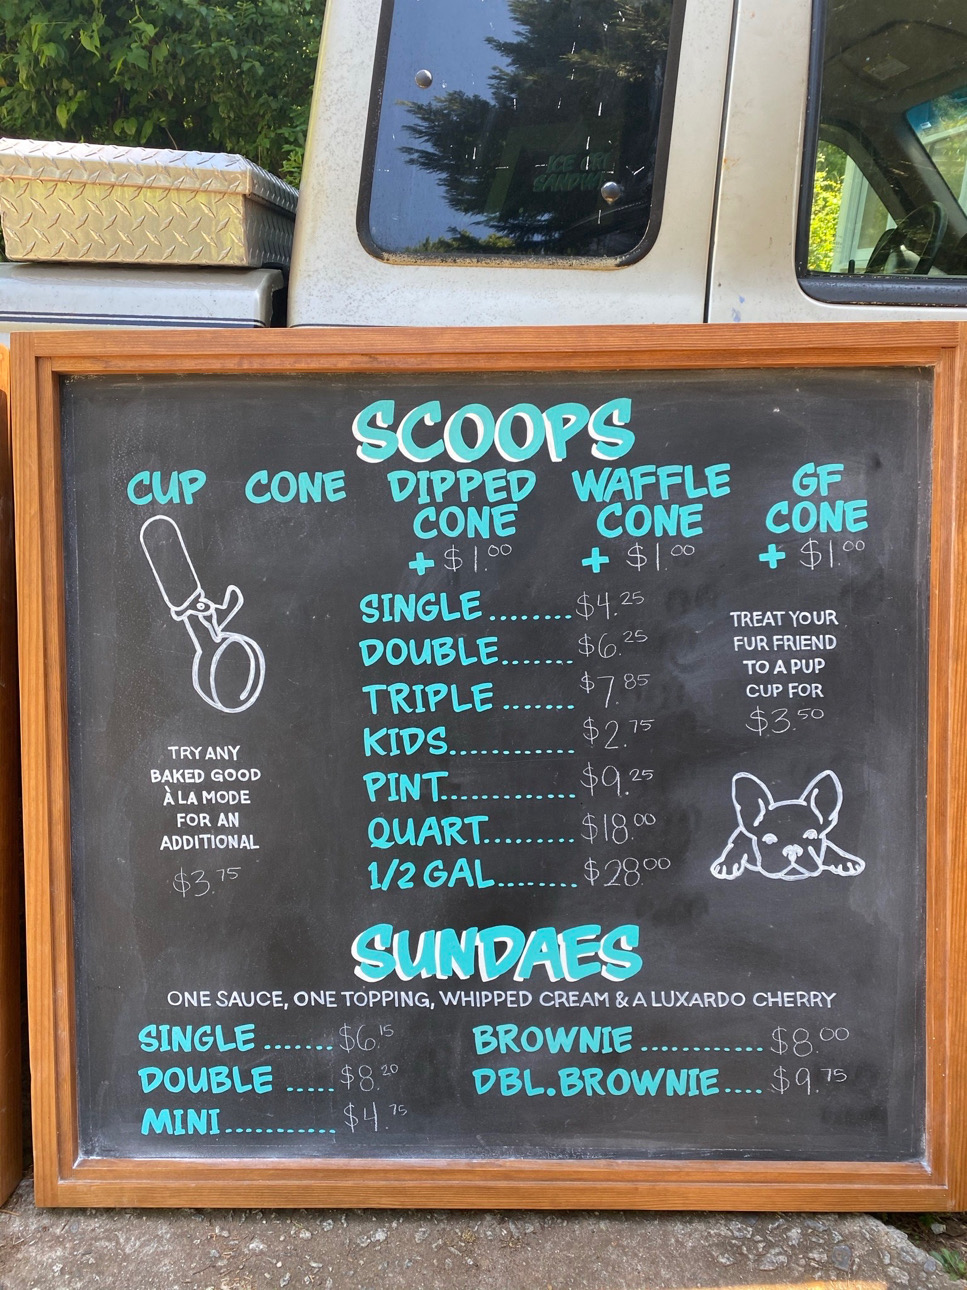 ICE CRE
SANDWI
SCOOPS
CUP CONE DIPPED CONE + $1.00 WAFFLE CONE + $1.00 GF CONE + $1.00
SINGLE........$4.25
DOUBLE.......$6.25
TRIPLE.......$7.85
KIDS............$2.75
PINT............$9.25
QUART........$18.00
1/2 GAL.......$28.00
TREAT YOUR
FUR FRIEND
TO A PUP
CUP FOR
$3.50
TRY ANY
BAKED GOOD
À LA MODE
FOR AN
ADDITIONAL
$3.75
SUNDAES
ONE SAUCE, ONE TOPPING, WHIPPED CREAM & A LUXARDO CHERRY
SINGLE.......$6.15
DOUBLE.....$8.20
MINI...........$4.75
BROWNIE.............$8.00
DBL.BROWNIE.....$9.75